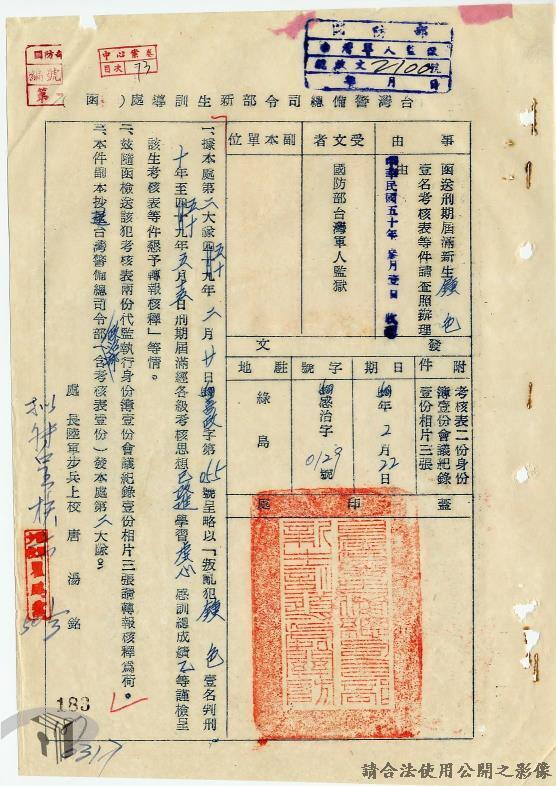 國防部
編號
第
中心業卷
目次 73
國防部
台灣軍人監獄
總收文2100號
年 月 日
台灣警備總司令部新生訓導處(函)
事由
函送刑期屆滿新生顏色
壹名考核表等件請查照辦理
受文者
國防部台灣軍人監獄
副本單位
中華民國五十年參月壹日收
附件
考核表二份身份
簿壹份會議紀錄
壹份相片三張
發文
日期
50年2月22日
字號
感治字
0129號
駐地
綠島
蓋印處
一、據本處第二大隊五十年二月廿日字第055號呈略以「叛亂犯顏色壹名判刑
十年至五十年三月刑期屆滿經各級考核思想已學習虛心感訓總成績乙等謹檢呈
該生考核表等件懇予轉報核釋」等情。
二、茲隨函檢送該犯考核表兩份代監執行身份簿壹份會議紀錄壹份相片三張請轉報核釋為荷。
三、本件副本抄送台灣警備總司令部(含考核表壹份)發本處第二大隊。
處長陸軍步兵上校唐湯銘
183
0317
請合法使用公開之影像